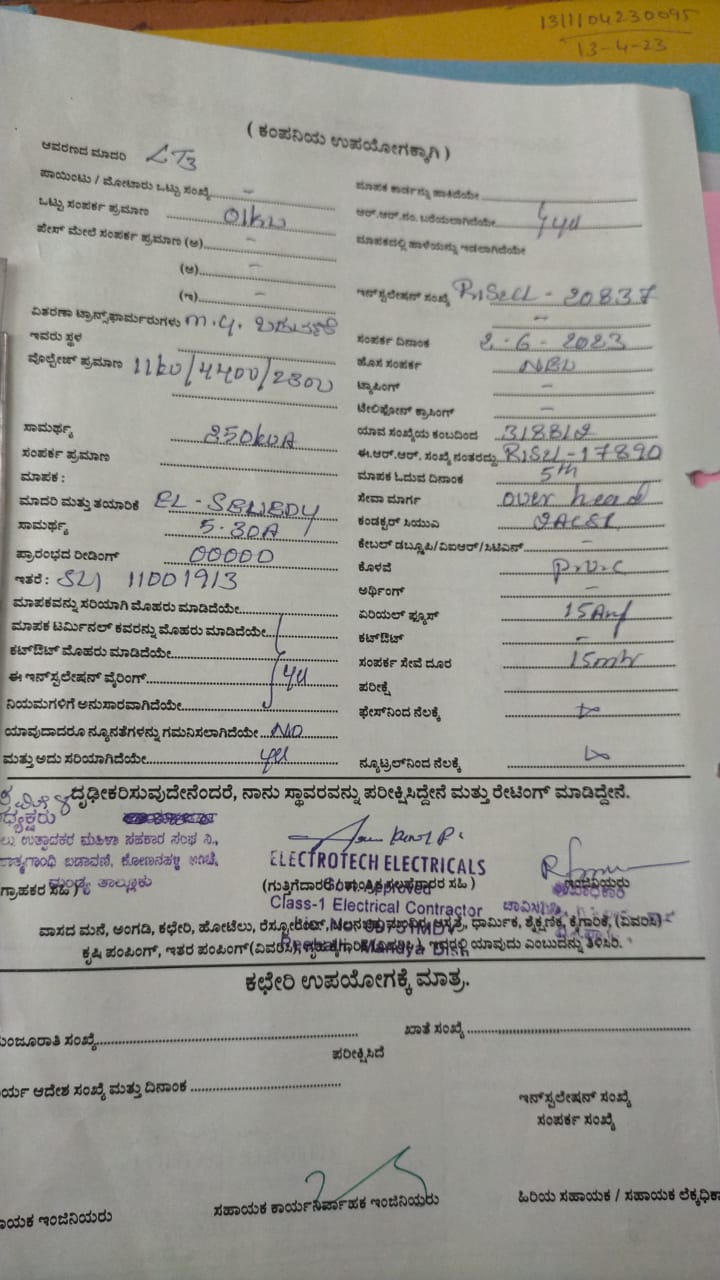 1311104230095
13-4-23
( ಕಂಪನಿಯ ಉಪಯೋಗಕ್ಕಾಗಿ )
ಆವರಣದ ಮಾದರಿ LT3
ಪಾಯಿಂಟು / ಮೋಟಾರು ಒಟ್ಟು ಸಂಖ್ಯೆ -
ಒಟ್ಟು ಸಂಪರ್ಕ ಪ್ರಮಾಣ 01kw
ಫೇಸ್ ಮೇಲೆ ಸಂಪರ್ಕ ಪ್ರಮಾಣ (ಅ) -
(ಆ) -
(ಇ) -
ವಿತರಣಾ ಟ್ರಾನ್ಸ್‌ಫಾರ್ಮರುಗಳು
ಇವರು ಸ್ಥಳ
ವೋಲ್ಟೇಜ್ ಪ್ರಮಾಣ 11kv/4400/230v
ಸಾಮರ್ಥ್ಯ 250kVA
ಸಂಪರ್ಕ ಪ್ರಮಾಣ
ಮಾಪಕ :
ಮಾದರಿ ಮತ್ತು ತಯಾರಿಕೆ
ಸಾಮರ್ಥ್ಯ 5-30A
ಪ್ರಾರಂಭದ ರೀಡಿಂಗ್ 00000
ಇತರೆ : 11001913
ಮಾಪಕವನ್ನು ಸರಿಯಾಗಿ ಮೊಹರು ಮಾಡಿದೆಯೇ
ಮಾಪಕ ಟರ್ಮಿನಲ್ ಕವರನ್ನು ಮೊಹರು ಮಾಡಿದೆಯೇ
ಕಟ್‌ಔಟ್ ಮೊಹರು ಮಾಡಿದೆಯೇ
ಈ ಇನ್‌ಸ್ಟಲೇಷನ್ ವೈರಿಂಗ್ yes
ನಿಯಮಗಳಿಗೆ ಅನುಸಾರವಾಗಿದೆಯೇ
ಯಾವುದಾದರೂ ನ್ಯೂನತೆಗಳನ್ನು ಗಮನಿಸಲಾಗಿದೆಯೇ NO
ಮತ್ತು ಅದು ಸರಿಯಾಗಿದೆಯೇ yes
ಮಾಪಕ ಕಾರ್ಡನ್ನು ಹಾಕಿದೆಯೇ
ಆರ್.ಆರ್.ನಂ. ಬರೆಯಲಾಗಿದೆಯೇ yes
ಮಾಪಕದಲ್ಲಿ ಹಾಳೆಯನ್ನು ಇಡಲಾಗಿದೆಯೇ
ಇನ್‌ಸ್ಟಲೇಷನ್ ಸಂಖ್ಯೆ - 20837
-
ಸಂಪರ್ಕ ದಿನಾಂಕ 2-6-2023
ಹೊಸ ಸಂಪರ್ಕ NEW
ಟ್ಯಾಪಿಂಗ್ -
ಟೆಲಿಫೋನ್ ಕ್ರಾಸಿಂಗ್ -
ಯಾವ ಸಂಖ್ಯೆಯ ಕಂಬದಿಂದ
ಈ.ಆರ್.ಆರ್. ಸಂಖ್ಯೆ ನಂತರದ್ದು - 17890
ಮಾಪಕ ಓದುವ ದಿನಾಂಕ 5th
ಸೇವಾ ಮಾರ್ಗ over head
ಕಂಡಕ್ಟರ್ ಸಿಯುಎ
ಕೇಬಲ್ ಡಬ್ಲ್ಯೂಪಿ/ವಿಐಆರ್/ಸಿಟಿಎನ್ -
ಕೊಳವೆ P.V.C
ಅರ್ಥಿಂಗ್ -
ಏರಿಯಲ್ ಫ್ಯೂಸ್ 15Amp
ಕಟ್‌ಔಟ್ -
ಸಂಪರ್ಕ ಸೇವೆ ದೂರ 15mtr
ಪರೀಕ್ಷೆ
ಫೇಸ್‌ನಿಂದ ನೆಲಕ್ಕೆ
ನ್ಯೂಟ್ರಲ್‌ನಿಂದ ನೆಲಕ್ಕೆ
ದೃಢೀಕರಿಸುವುದೇನೆಂದರೆ, ನಾನು ಸ್ಥಾವರವನ್ನು ಪರೀಕ್ಷಿಸಿದ್ದೇನೆ ಮತ್ತು ರೇಟಿಂಗ್ ಮಾಡಿದ್ದೇನೆ.
ಧ್ಯಕ್ಷರು
ಲು ಉತ್ಪಾದಕರ ಮಹಿಳಾ ಸಹಕಾರ ಸಂಘ ನಿ.,
ಬಡಾವಣೆ,
ಮಂಡ್ಯ ತಾಲ್ಲೂಕು
ಗ್ರಾಹಕರ ಸಹಿ )
ELECTROTECH ELECTRICALS
Class-1 Electrical Contractor
ಇಂಜಿನಿಯರು
ವಾಸದ ಮನೆ, ಅಂಗಡಿ, ಕಛೇರಿ, ಹೋಟೆಲು, ಆಸ್ಪತ್ರೆ, ಧಾರ್ಮಿಕ, ಶೈಕ್ಷಣಿಕ, ಕೈಗಾರಿಕೆ, (ವಿವರಿಸಿ)
ಕೃಷಿ ಪಂಪಿಂಗ್, ಇತರ ಪಂಪಿಂಗ್(ವಿವರಿಸಿ), ಇದರಲ್ಲಿ ಯಾವುದು ಎಂಬುದನ್ನು ತಿಳಿಸಿರಿ.
ಕಛೇರಿ ಉಪಯೋಗಕ್ಕೆ ಮಾತ್ರ.
ಮಂಜೂರಾತಿ ಸಂಖ್ಯೆ
ಖಾತೆ ಸಂಖ್ಯೆ
ಪರೀಕ್ಷಿಸಿದೆ
ರ್ಯ ಆದೇಶ ಸಂಖ್ಯೆ ಮತ್ತು ದಿನಾಂಕ
ಇನ್‌ಸ್ಟಲೇಷನ್ ಸಂಖ್ಯೆ
ಸಂಪರ್ಕ ಸಂಖ್ಯೆ
ಾಯಕ ಇಂಜಿನಿಯರು
ಸಹಾಯಕ ಕಾರ್ಯನಿರ್ವಾಹಕ ಇಂಜಿನಿಯರು
ಹಿರಿಯ ಸಹಾಯಕ / ಸಹಾಯಕ ಲೆಕ್ಕಧಿಕಾ